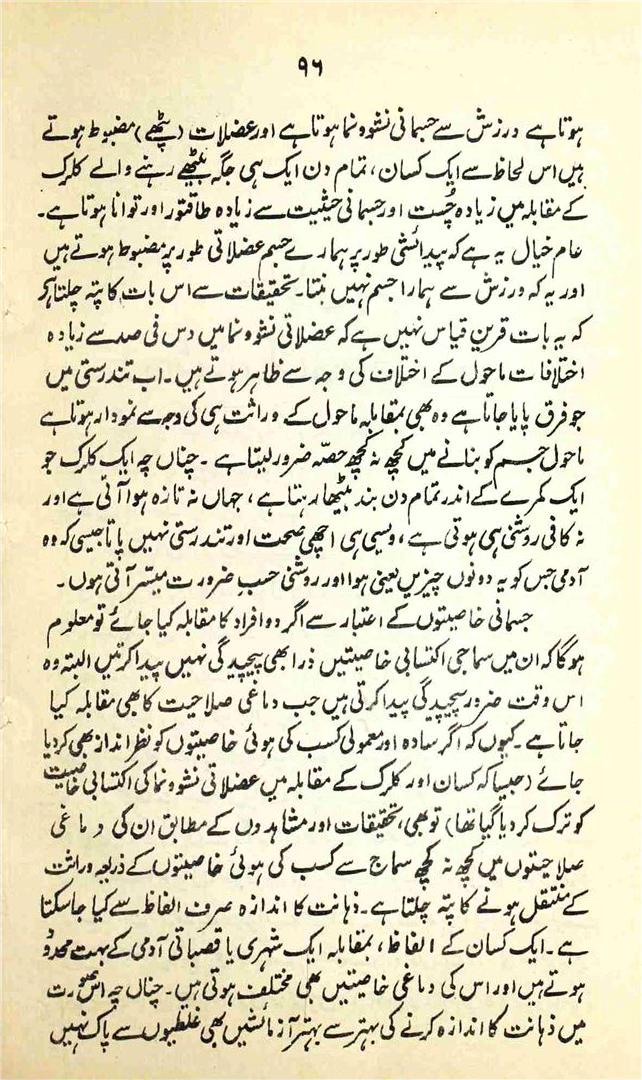 ۹۶
ہوتا ہے ورزش سے جسمانی نشوونما ہوتا ہے اور عضلات (پٹھے) مضبوط ہوتے
ہیں اس لحاظ سے ایک کسان، تمام دن ایک ہی جگہ بیٹھے رہنے والے کلرک
کے مقابلہ میں زیادہ چُست اور جسمانی حیثیت سے زیادہ طاقتور اور توانا ہوتا ہے۔
عام خیال یہ ہے کہ پیدائشی طور پر ہمارے جسم عضلاتی طور پر مضبوط ہوتے ہیں
اور یہ کہ ورزش سے ہمارا جسم نہیں بنتا۔ تحقیقات سے اس بات کا پتہ چلتا ہے
کہ یہ بات قرین قیاس نہیں ہے کہ عضلاتی نشوونما میں دس فی صد سے زیادہ
اختلافات ماحول کے اختلاف کی وجہ سے ظاہر ہوتے ہیں۔ اب تندرستی میں
جو فرق پایا جاتا ہے وہ بھی بمقابلہ ماحول کے وراثت ہی کی وجہ سے نمودار ہوتا ہے
ماحول جسم کو بنانے میں کچھ نہ کچھ حصّہ ضرور لیتا ہے۔ چناں چہ ایک کلرک جو
ایک کمرے کے اندر تمام دن بند بیٹھا رہتا ہے، جہاں نہ تازہ ہوا آتی ہے اور
نہ کافی روشنی ہی ہوتی ہے، ویسی ہی اچھی صحت اور تندرستی نہیں پاتا جیسی کہ وہ
آدمی جس کو یہ دونوں چیزیں یعنی ہوا اور روشنی حسبِ ضرورت میسّر آتی ہوں۔
جسمانی خاصیتوں کے اعتبار سے اگر دو افراد کا مقابلہ کیا جائے تو معلوم
ہوگا کہ ان میں سماجی اکتسابی خاصیتیں ذرا بھی پیچیدگی نہیں پیدا کرتیں البتہ وہ
اس وقت ضرور پیچیدگی پیدا کرتی ہیں جب دماغی صلاحیت کا بھی مقابلہ کیا
جاتا ہے۔ کیوں کہ اگر سادہ اور معمولی کسب کی ہوئی خاصیتوں کو نظر انداز بھی کردیا
جائے (جیسا کہ کسان اور کلرک کے مقابلہ میں عضلاتی نشوونما کی اکتسابی خاصیت
کو ترک کر دیا گیا تھا) تو بھی، تحقیقات اور مشاہدوں کے مطابق ان کی دماغی
صلاحیتوں میں کچھ نہ کچھ سماج سے کسب کی ہوئی خاصیتوں کے ذریعہ وراثت
کے منتقل ہونے کا پتہ چلتا ہے۔ ذہانت کا اندازہ صرف الفاظ سے کیا جاسکتا
ہے۔ ایک کسان کے الفاظ، بمقابلہ ایک شہری یا قصباتی آدمی کے بہت محدود
ہوتے ہیں اور اس کی دماغی خاصیتیں بھی مختلف ہوتی ہیں۔ چناں چہ اس صورت
میں ذہانت کا اندازہ کرنے کی بہتر سے بہتر آزمائشیں بھی غلطیوں سے پاک نہیں